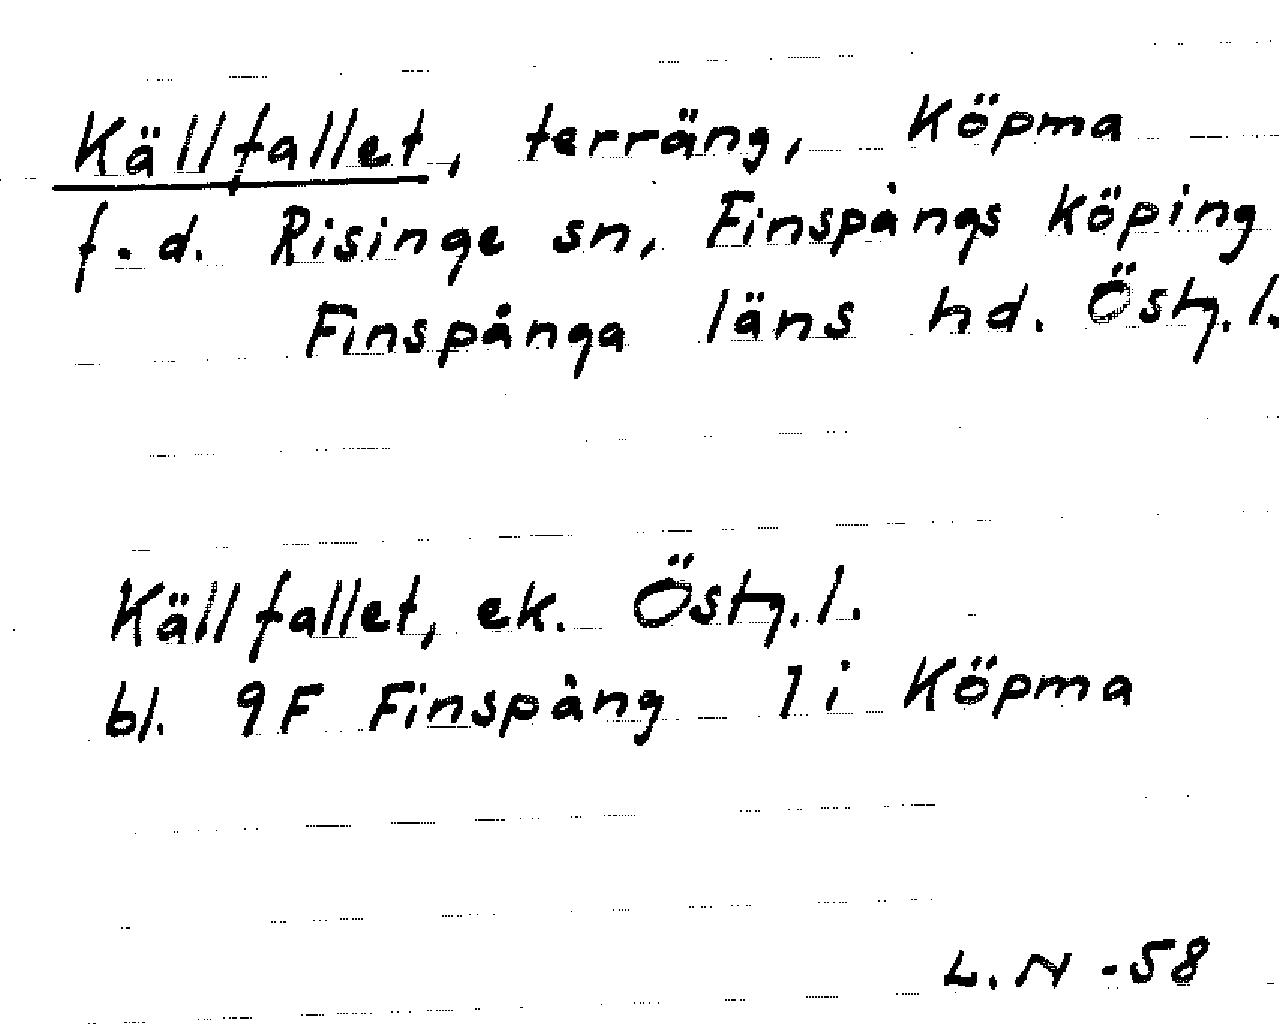 Källfallet, terräng, Köpma
f.d. Risinge sn, Finspångs köping
Finspånga läns hd. Östg.l.
Källfallet, ek. Östg.l.
bl. 9F Finspång 1 i Köpma
L.N -58